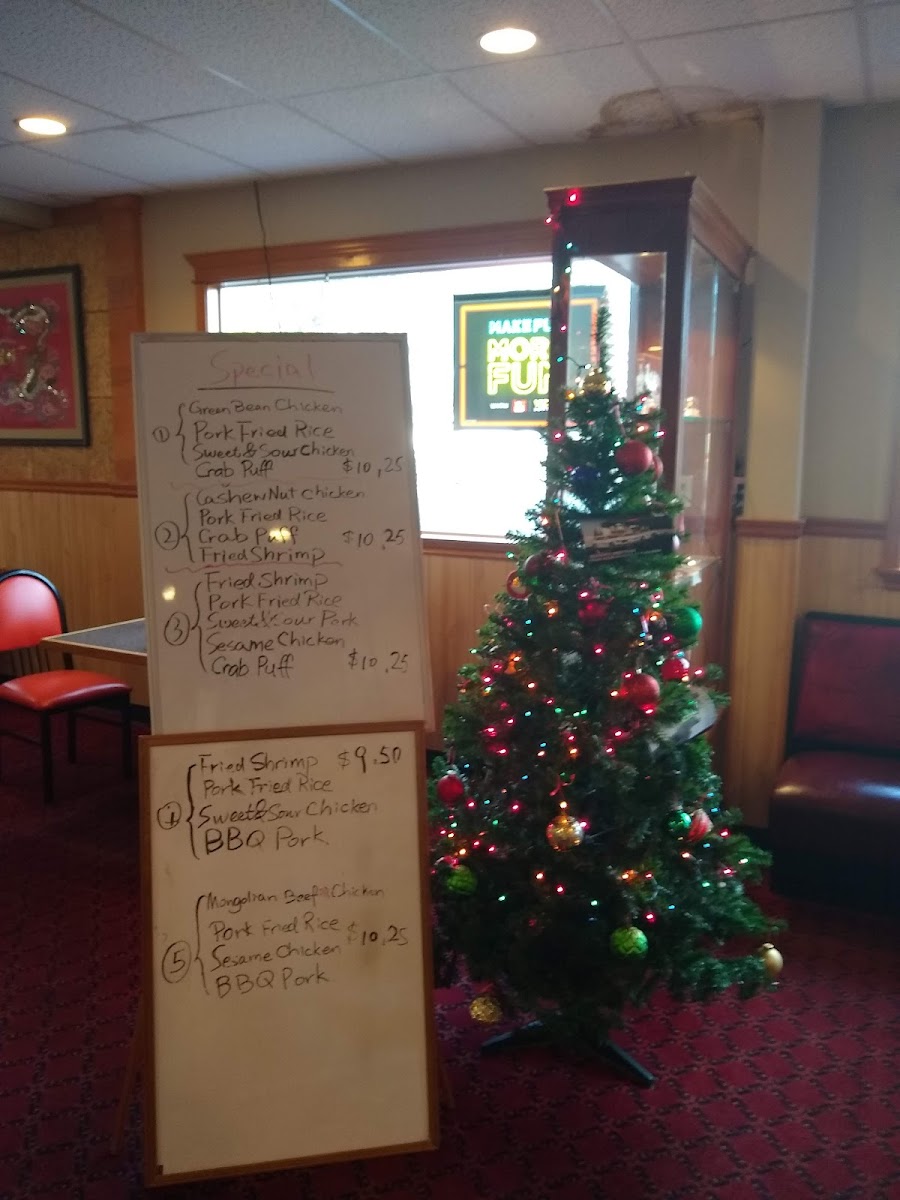 Special
① Green Bean Chicken
Pork Fried Rice
Sweet & Sour Chicken
Crab Puff $10.25
② Cashew Nut Chicken
Pork Fried Rice
Crab Puff $10.25
Fried Shrimp
③ Fried Shrimp
Pork Fried Rice
Sweet & Sour Pork
Sesame Chicken
Crab Puff $10.25
④ Fried Shrimp $9.50
Pork Fried Rice
Sweet & Sour Chicken
BBQ Pork
⑤ Mongolian Beef Chicken
Pork Fried Rice $10.25
Sesame Chicken
BBQ Pork
MAKE
MOR
FUN